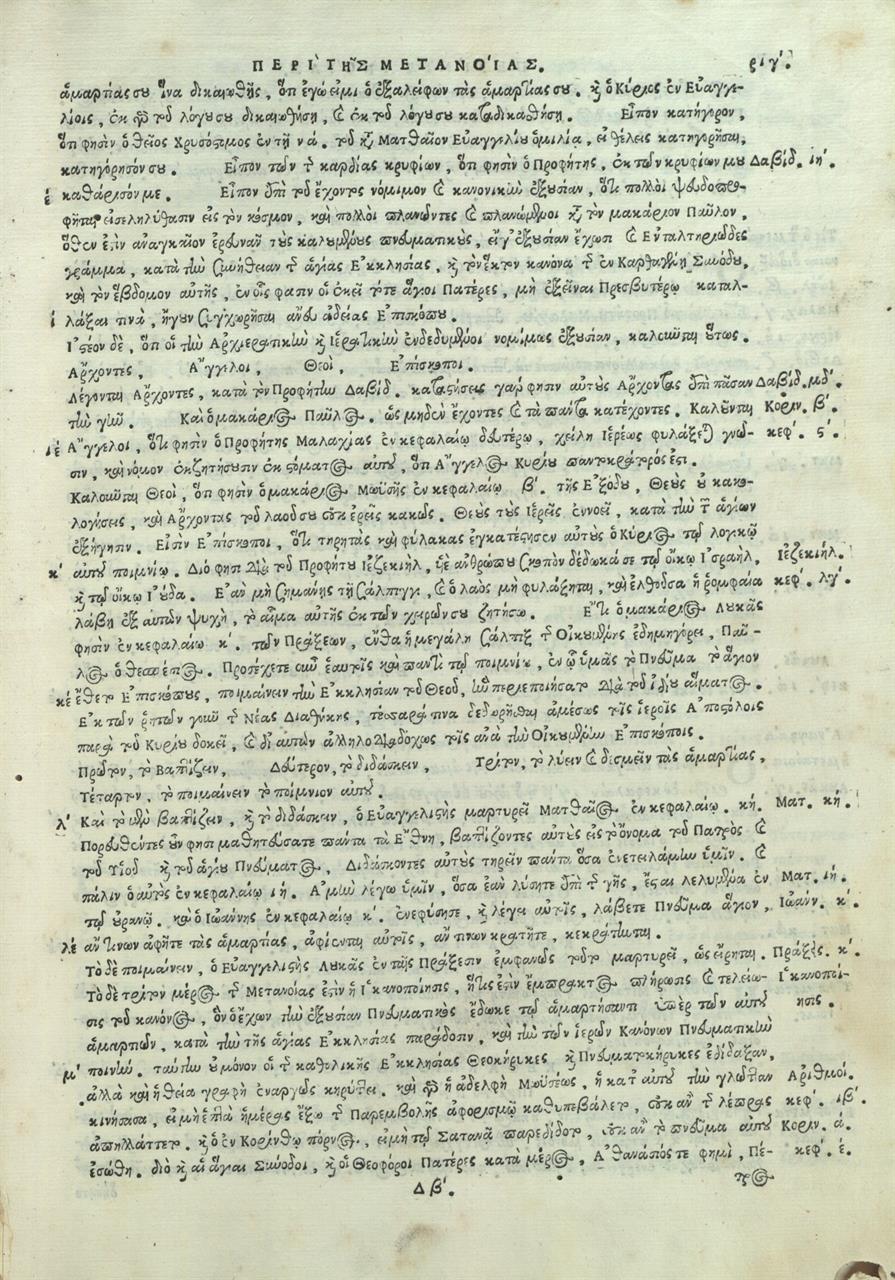 ΠΕΡΙ ΤΗ͂Σ ΜΕΤΑΝΟΊΑΣ. ριγ΄.
ἁμαρτίας σου ἵνα δικαιωθῇς, ὅτι ἐγώ εἰμι ὁ ἐξαλείφων τὰς ἁμαρτίας σου. καὶ ὁ Κύριος ἐν Εὐαγγε-
λίοις, ἐκ γὰρ τοῦ λόγου σου δικαιωθήσῃ, καὶ ἐκ τοῦ λόγου σου καταδικαθήσῃ. Εἶπον κατήγορον,
ὅτι φησὶν ὁ θεῖος Χρυσόστομος ἐν τῇ νά. τοῦ κατὰ Ματθαῖον Εὐαγγελίου ὁμιλίᾳ, εἰ θέλεις κατηγορῆσαι,
κατηγόρησόν σου. Εἶπον τῶν τῆς καρδίας κρυφίων, ὅτι φησὶν ὁ Προφήτης, ἐκ τῶν κρυφίων μου Δαβίδ. ιή.
έ καθάρισόν με. Εἶπον ἐπὶ τοῦ ἔχοντος νόμιμον καὶ κανονικὴν ἐξουσίαν, ὅτι πολλοὶ ψευδοπρο-
φῆται εἰσεληλύθασιν εἰς τὸν κόσμον, καὶ πολλοὶ πλανῶντες καὶ πλανώμενοι κατὰ τὸν μακάριον Παῦλον.
ὅθεν ἐστὶν ἀναγκαῖον ἐρευνᾶν τοὺς καλουμένους πνευματικοὺς, εἴγ' ἐξουσίαν ἔχωσι καὶ Ἐνταλτηριῶδες
γράμμα, κατὰ τὴν συνήθειαν τῆς ἁγίας Ἐκκλησίας, καὶ τὸν ἕκτον κανόνα τῆς ἐν Καρθαγένῃ Συνόδου,
καὶ τὸν ἕβδομον αὐτῆς, ἐν οἷς φασιν οἱ ἐκεῖ τότε ἅγιοι Πατέρες, μὴ ἐξεῖναι Πρεσβυτέρῳ καταλ-
ί λάξαι τινὰ, ἤγουν συγχωρῆσαι ἄνευ ἀδείας Ἐπισκόπου.
Ἰστέον δὲ, ὅτι οἱ τὴν Ἀρχιερατικὴν καὶ Ἱερατικὴν ἐνδεδυμένοι νομίμως ἐξουσίαν, καλοῦνται οὕτως.
Ἄρχοντες, Ἄγγελοι, Θεοὶ, Ἐπίσκοποι.
Λέγονται Ἄρχοντες, κατὰ τὸν Προφήτην Δαβίδ. καταστήσεις γάρ φησιν αὐτοὺς Ἄρχοντας ἐπὶ πᾶσαν Δαβίδ. μδ΄.
τὴν γῆν. Καὶ ὁ μακάριος Παῦλος. ὡς μηδὲν ἔχοντες καὶ τὰ πάντα κατέχοντες. Καλοῦνται Κοριν. β΄.
ιέ Ἄγγελοι, ὅτι φησὶν ὁ Προφήτης Μαλαχίας ἐν κεφαλαίῳ δευτέρῳ, χείλη Ἱερέως φυλάξεται γνῶ- κεφ΄. ς΄.
σιν, καὶ νόμον ἐκζητήσουσιν ἐκ στόματος αὐτοῦ, ὅτι Ἄγγελος Κυρίου παντοκράτορός ἐστι.
Καλοῦνται Θεοὶ, ὅτι φησὶν ὁ μακάριος Μωϋσῆς ἐν κεφαλαίῳ β΄. τῆς Ἐξόδου, Θεοὺς οὐ κακο-
λογήσεις, καὶ Ἄρχοντας τοῦ λαοῦ σου οὐκ ἐρεῖς κακῶς. Θεοὺς τοὺς Ἱερεῖς ἐννοεῖ, κατὰ τὴν τῶν ἁγίων
ἐξήγησιν. Εἰσὶν Ἐπίσκοποι, ὅτι τηρητὰς καὶ φύλακας ἐγκατέστησεν αὐτοὺς ὁ Κύριος τῷ λογικῷ
κ΄ αὐτοῦ ποιμνίῳ. Διό φησι διὰ τοῦ Προφήτου Ἰεζεκιὴλ, υἱὲ ἀνθρώπου σκοπὸν δέδωκά σε τῷ οἴκῳ Ἰσραὴλ, Ἰεζεκιήλ.
καὶ τῷ οἴκῳ Ἰούδα. Ἐὰν μὴ σημανῇς τῇ Σάλπιγγι, καὶ ὁ λαὸς μὴ φυλάξηται, καὶ ἐλθοῦσα ἡ ῥομφαία κεφ΄. λγ΄.
λάβῃ ἐξ αὐτῶν ψυχὴν, τὸ αἷμα αὐτῆς ἐκ τῶν χειρῶν σου ζητήσω. Ἔτι ὁ μακάριος Λουκᾶς
φησὶν ἐν κεφαλαίῳ κ΄. τῶν Πράξεων, ἔνθα ἡ μεγάλη Σάλπιξ τῆς Οἰκουμένης ἐδημηγόρει, Παῦ-
λος ὁ θεσπέσιος. Προσέχετε οὖν ἑαυτοῖς καὶ παντὶ τῷ ποιμνίῳ, ἐν ᾧ ὑμᾶς τὸ Πνεῦμα τὸ ἅγιον
κέ ἔθετο Ἐπισκόπους, ποιμαίνειν τὴν Ἐκκλησίαν τοῦ Θεοῦ, ἣν περιεποιήσατο διὰ τοῦ ἰδίου αἵματος.
Ἐκ τῶν ῥητῶν γοῦν τῆς Νέας Διαθήκης, τέσσαρά τινα δεδωρῆσθαι ἀμέσως τοῖς ἱεροῖς Ἀποστόλοις
παρὰ τοῦ Κυρίου δοκεῖ, καὶ δι' αὐτῶν ἀλληλοδιαδόχως τοῖς ἀνὰ τὴν Οἰκουμένην Ἐπισκόποις.
Πρῶτον, τὸ Βαπτίζειν, Δεύτερον, τὸ διδάσκειν, Τρίτον, τὸ λύειν καὶ δεσμεῖν τὰς ἁμαρτίας,
Τέταρτον, τὸ ποιμαίνειν τὸ ποίμνιον αὐτοῦ.
λ΄ Καὶ τὸ μὲν βαπτίζειν, καὶ τὸ διδάσκειν, ὁ Εὐαγγελιστὴς μαρτυρεῖ Ματθαῖος ἐν κεφαλαίῳ. κή. Ματ. κή.
Πορευθέντες οὖν φησι μαθητεύσατε πάντα τὰ Ἔθνη, βαπτίζοντες αὐτοὺς εἰς τὸ ὄνομα τοῦ Πατρὸς καὶ
τοῦ Υἱοῦ καὶ τοῦ ἁγίου Πνεύματος, Διδάσκοντες αὐτοὺς τηρεῖν πάντα ὅσα ἐνετειλάμην ὑμῖν. καὶ
πάλιν ὁ αὐτὸς ἐν κεφαλαίῳ ιή. Ἀμὴν λέγω ὑμῖν, ὅσα ἐὰν λύσητε ἐπὶ τῆς γῆς, ἔσται λελυμένα ἐν Ματ. ιή.
τῷ οὐρανῷ. καὶ ὁ Ἰωάννης ἐν κεφαλαίῳ κ΄. ἐνεφύσησε, καὶ λέγει αὐτοῖς, λάβετε Πνεῦμα ἅγιον, Ἰωάνν. κ΄.
λέ ἄν τινων ἀφῆτε τὰς ἁμαρτίας, ἀφίενται αὐτοῖς, ἄν τινων κρατῆτε, κεκράτηνται.
Τὸ δὲ ποιμαίνειν, ὁ Εὐαγγελιστὴς Λουκᾶς ἐν ταῖς Πράξεσιν ἐμφανῶς τοῦτο μαρτυρεῖ, ὡς εἴρηται. Πράξε. κ΄.
Τὸ δὲ τρίτον μέρος τῆς Μετανοίας ἐστὶν ἡ Ἱκανοποίησις, ἥτις ἐστὶν ἔμπρακτος πλήρωσις καὶ τελείω- Ἱκανοποί-
σις τοῦ κανόνος, ὃν ὁ ἔχων τὴν ἐξουσίαν Πνευματικὸς ἔδωκε τῷ ἁμαρτήσαντι ὑπὲρ τῶν αὐτοῦ ησις.
ἁμαρτιῶν, κατὰ τὴν τῆς ἁγίας Ἐκκλησίας παράδοσιν, καὶ τὴν τῶν ἱερῶν Κανόνων Πνευματικὴν
μ΄ ποινήν. ταύτην οὐ μόνον οἱ τῆς καθολικῆς Ἐκκλησίας Θεοκήρυκες καὶ Πνευματοκήρυκες ἐδίδαξαν,
ἀλλὰ καὶ ἡ θεία γραφὴ ἐναργῶς κηρύττει. καὶ γὰρ ἡ ἀδελφὴ Μωϋσέως, ἡ κατ' αὐτοῦ τὴν γλῶτταν Ἀριθμοί.
κινήσασα, εἰ μὴ ἑπτὰ ἡμέρας ἔξω τῆς Παρεμβολῆς ἀφορισμῷ καθυπεβάλετο, οὐκ ἂν τῆς λέπρας κεφ΄. ιβ΄.
ἀπηλλάττετο. καὶ ὁ ἐν Κορίνθῳ πόρνος, εἰ μὴ τῷ Σατανᾷ παρεδίδοτο, οὐκ ἂν τὸ πνεῦμα αὐτοῦ Κοριν. ά.
ἐσώθη. διὸ καὶ αἱ ἅγιαι Σύνοδοι, καὶ οἱ Θεοφόροι Πατέρες κατὰ μέρος, Ἀθανάσιός τε φημὶ, Πέ- κεφ΄. έ.
Δ β΄. τρος